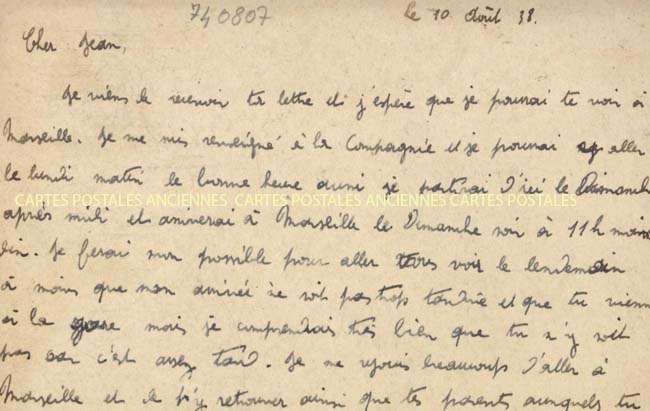 740807
Le 10 Août 38.
Cher Jean,
Je viens de recevoir ta lettre et j'espère que je pourrai te voir à
Marseille. Je me suis renseigné à la Compagnie et je pourrai y aller
le lundi matin de bonne heure aussi je partirai d'ici le Dimanche
CARTES POSTALES ANCIENNES CARTES POSTALES ANCIENNES CARTES POSTALES
après midi et arriverai à Marseille le Dimanche soir à 11h moins
dix. Je ferai mon possible pour aller vous voir le lendemain
à moins que mon arrivée ne soit pas trop tardive et que tu viennes
à la gare mais je comprendrais très bien que tu n'y soit
pas car c'est assez tard. Je me rejouis beaucoup d'aller à
Marseille et de t'y retrouver ainsi que tes parents auxquels tu